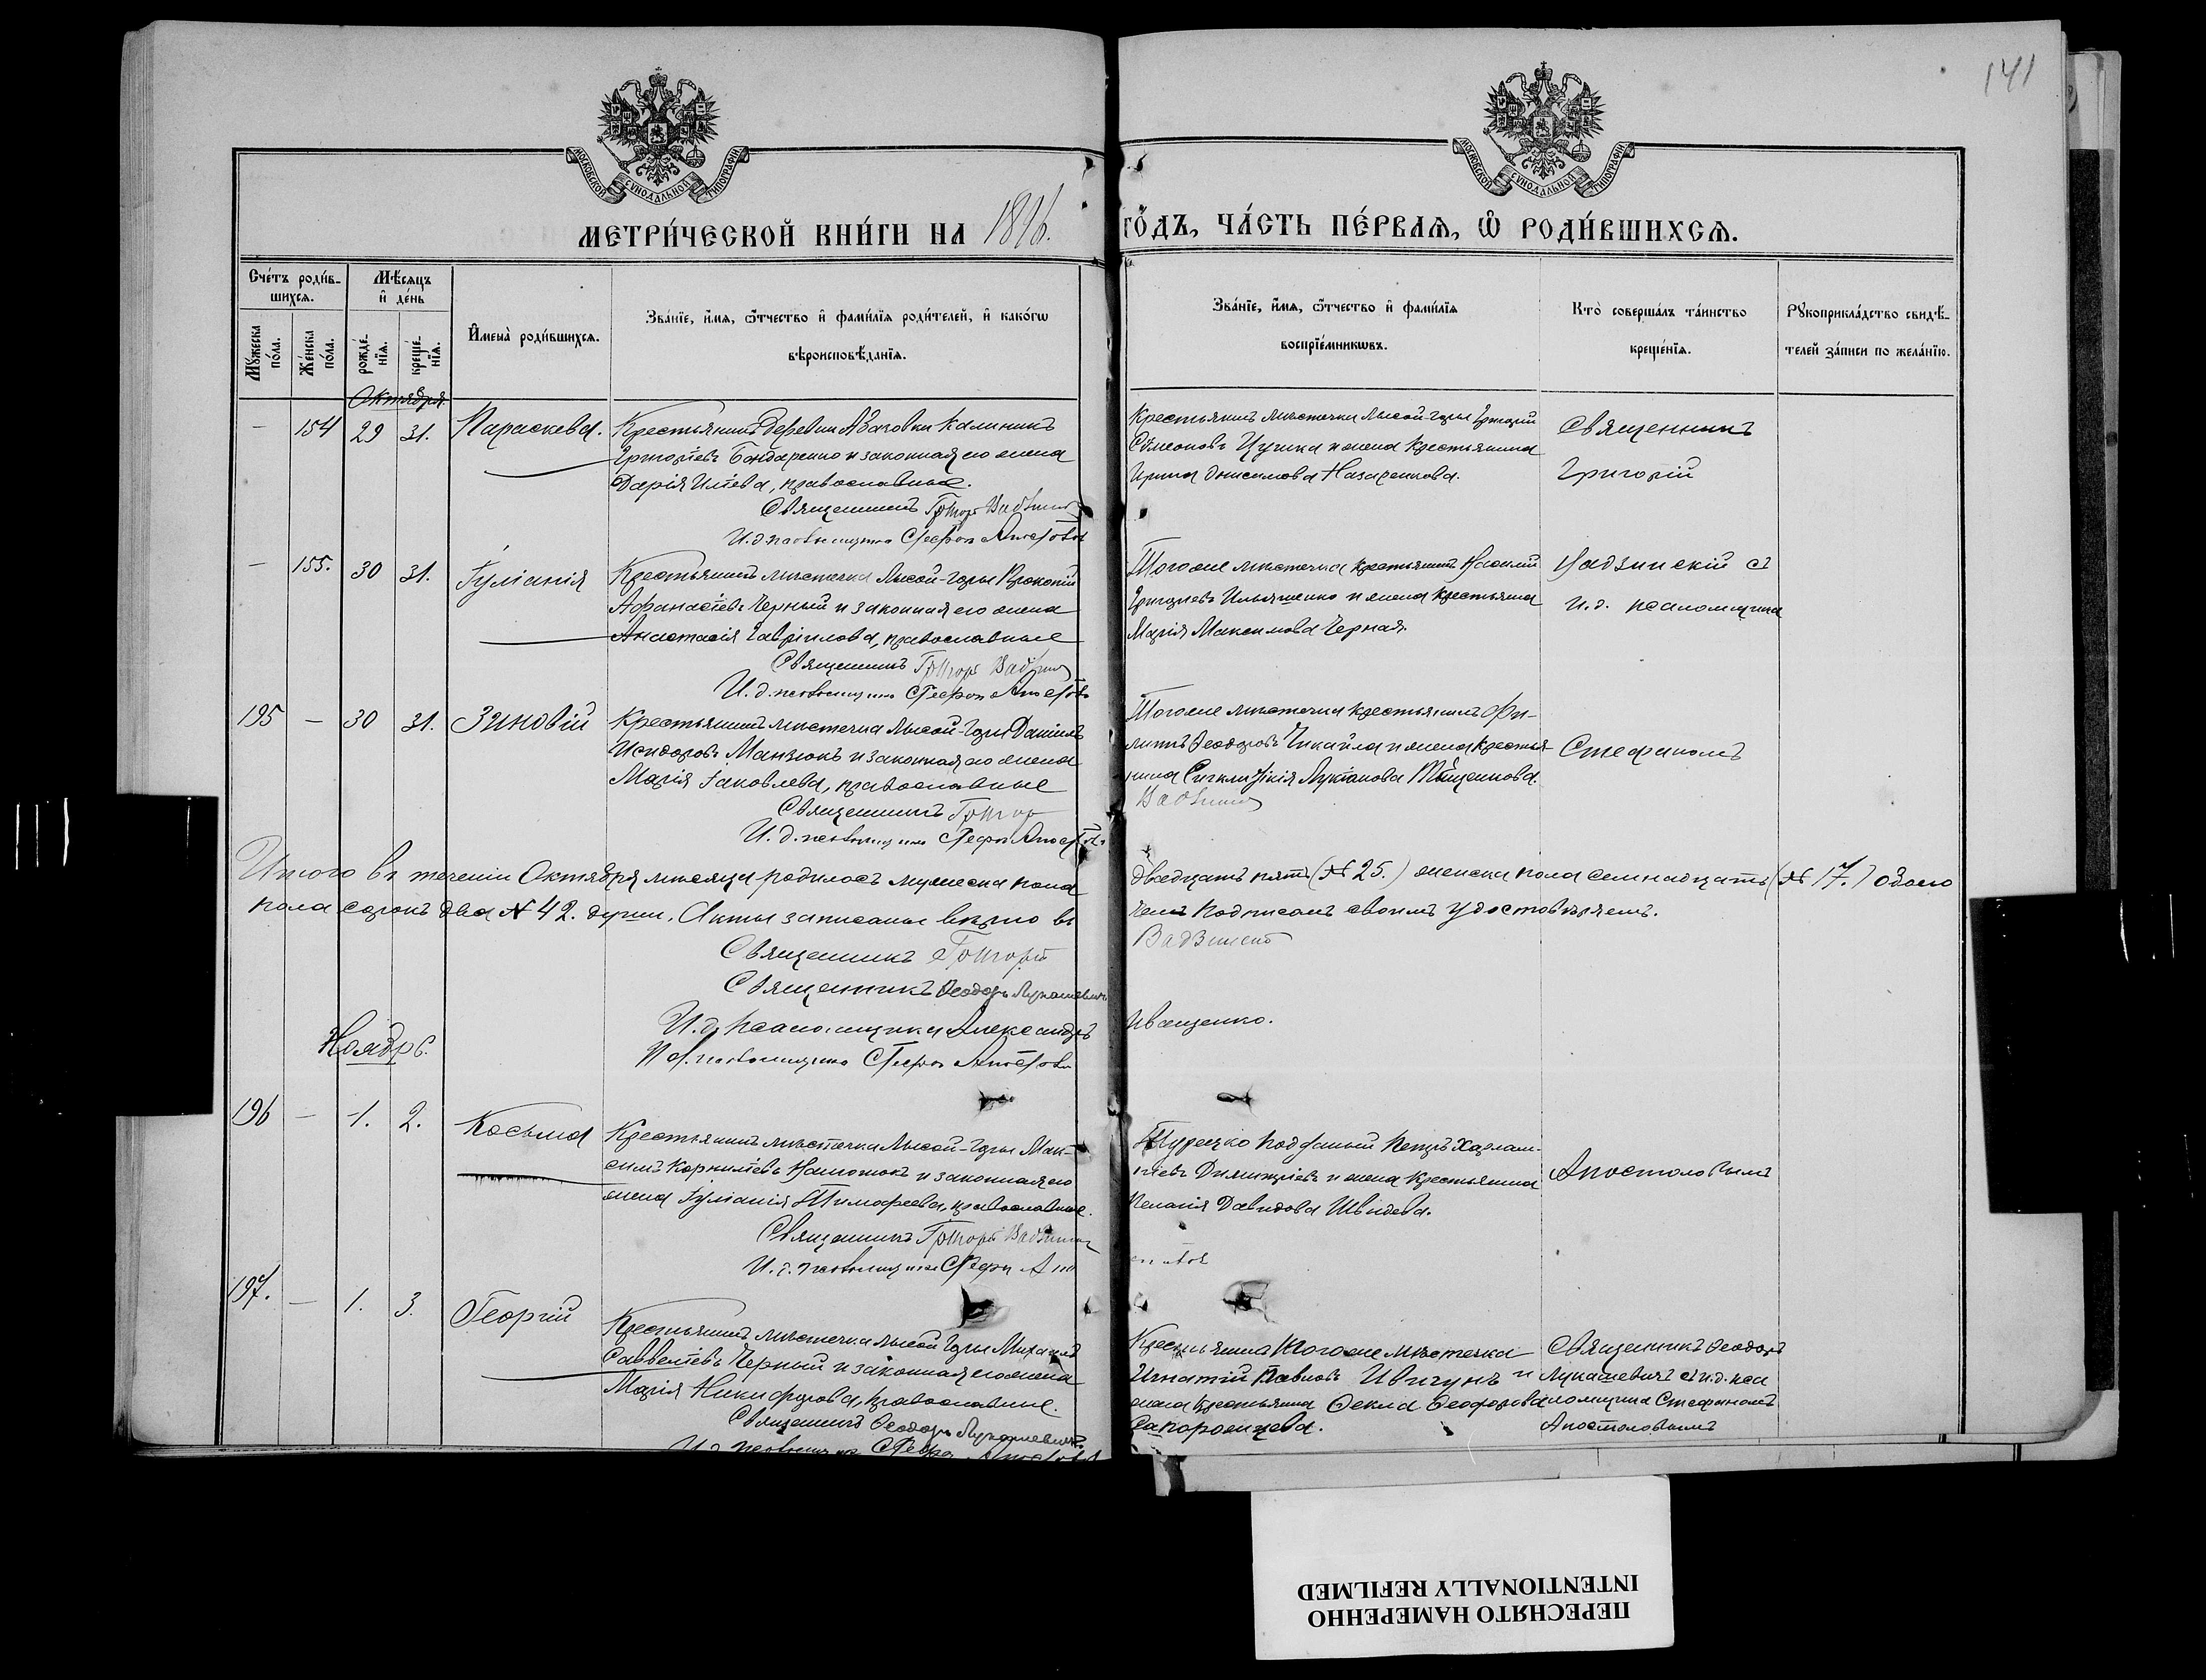 141
МОСКОВСКОЙ СУНОДАЛЬНОЙ ТИПОГРАФІИ
МОСКОВСКОЙ СУНОДАЛЬНОЙ ТИПОГРАФІИ
МЕТРИ́ЧЕСКОЙ КНИ́ГИ НА 1896.
ГО́ДЪ, ЧА́СТЬ ПЕ́РВАѦ, Ѽ РОДИ́ВШИХСѦ.
Сче́тъ роди́в-
шихсѧ.
Мѣ́сяцъ
и҆ де́нь
Мꙋ́жеска по́ла.
Же́нска по́ла.
рожде́-
нїѧ.
креще́-
нїѧ.
И҆мена̀ роди́вшихсѧ.
Зва́нїе, и҆́мѧ, ѻ҆́тчество и҆ фами́лїѧ роди́телей, и҆ како́гѡ
вѣроисповѣ́данїѧ.
Зва́нїе, и҆́мѧ, ѻ҆́тчество и҆ фами́лїѧ
воспрїе́мникѡвъ.
Кто̀ соверша́лъ та́инство
креще́нїѧ.
Рꙋкоприкла́дство свидѣ́-
телей за́писи по жела́нїю.
Октября.
— 154 29 31. Параскева.
Крестьянинъ деревни Азаовки Калиникъ
Григоріевъ Бондаренко и законная его жена
Дарія Иліева, православные.
Священникъ Григорій Вадзинскій
И. д. псаломщика Стефанъ Апостоловъ
Крестьянинъ мѣстечка Лысой-Горы Григорій
Сѵмеоновъ Цуцика и жена крестьянина
Ирина Онисимова Назаренкова.
Священникъ
Григорій
— 155. 30 31. Іуліанія
Крестьянинъ мѣстечка Лысой-Горы Прокопій
Афанасіевъ Черный и законная его жена
Анастасія Гавріилова, православные
Священникъ Григорій Вадзинскій
И. д. псаломщика Стефанъ Апостоловъ
Тогоже мѣстечка крестьянинъ Василій
Григоріевъ Ильяшенко и жена крестьянина
Марія Максимова Черная.
Вадзинскій съ
и. д. псаломщика
195 — 30 31. Зиновій
Крестьянинъ мѣстечка Лысой-Горы Даніилъ
Исидоровъ Манзюкъ и законная его жена
Марія Іаковлева, православные
Священникъ Григор
И. д. псаломщика Стефанъ Апостоловъ
Тогоже мѣстечка крестьянинъ Фи-
липпъ Ѳеодоровъ Чикайла и жена крестья-
нина Сигклитікія Лукіанова Тищенкова.
Вадзинскій
Стефаномъ
Итого въ теченіи Октября мѣсяца родилось мужеска пола
двадцать пять (№ 25.) женска пола семнадцать (№ 17.) обоего
пола сорокъ два № 42. души. Акты записаны вѣрно въ
чемъ подписомъ своимъ удостовѣряемъ.
Священникъ Григорій
Вадзинскій
Священникъ Ѳеодоръ Лукашевичъ
И. д. псаломщика Александръ
Иващенко.
И. д. псаломщика Стефанъ Апостоловъ
Ноябрь.
196 — 1. 2. Косьма
Крестьянинъ мѣстечка Лысой-Горы Мак-
симъ Корниліевъ и законная его
жена Іуліанія Тимофеева, православные.
Священникъ Григорій Вадзинск
И. д. псаломщика Стефанъ Апо
Турецко подданый Петръ Харлам-
піевъ Димитріевъ и жена крестьянина
Пелагія Давидова Швидева.
Апостоловымъ
197. — 1. 3. Георгій
Крестьянинъ мѣстечка Лысой Горы Михаилъ
Савватіевъ Черный и законная его жена
Марія Никифорова, православные.
Священникъ Ѳеодоръ Лукашевичъ.
И. д. псаломщика Стефанъ Апостоловъ
Крестьянина тогоже мѣстечка
Игнатій Павловъ Ивигунъ и
жена крестьянина Ѳекла Ѳеодорова
Запорожцева.
Священникъ Ѳеодоръ
Лукашевичъ съ и. д. пса
ломщика Стефаномъ
Апостоловымъ
ПЕРЕСНЯТО НАМЕРЕННО
INTENTIONALLY REFILMED